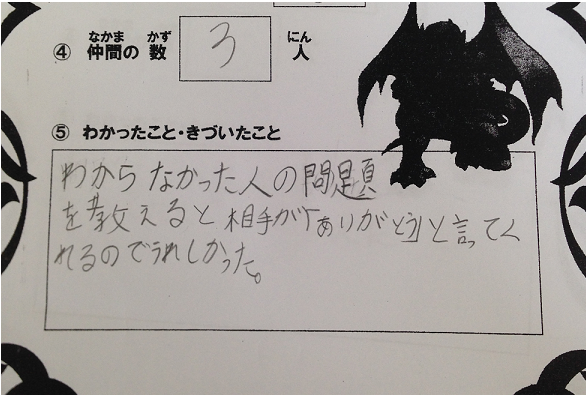 なかま かず にん
④ 仲間の 数 3 人
⑤ わかったこと・きづいたこと
わからなかった人の問題
を教えると相手が「ありがとう」と言ってく
れるのでうれしかった。